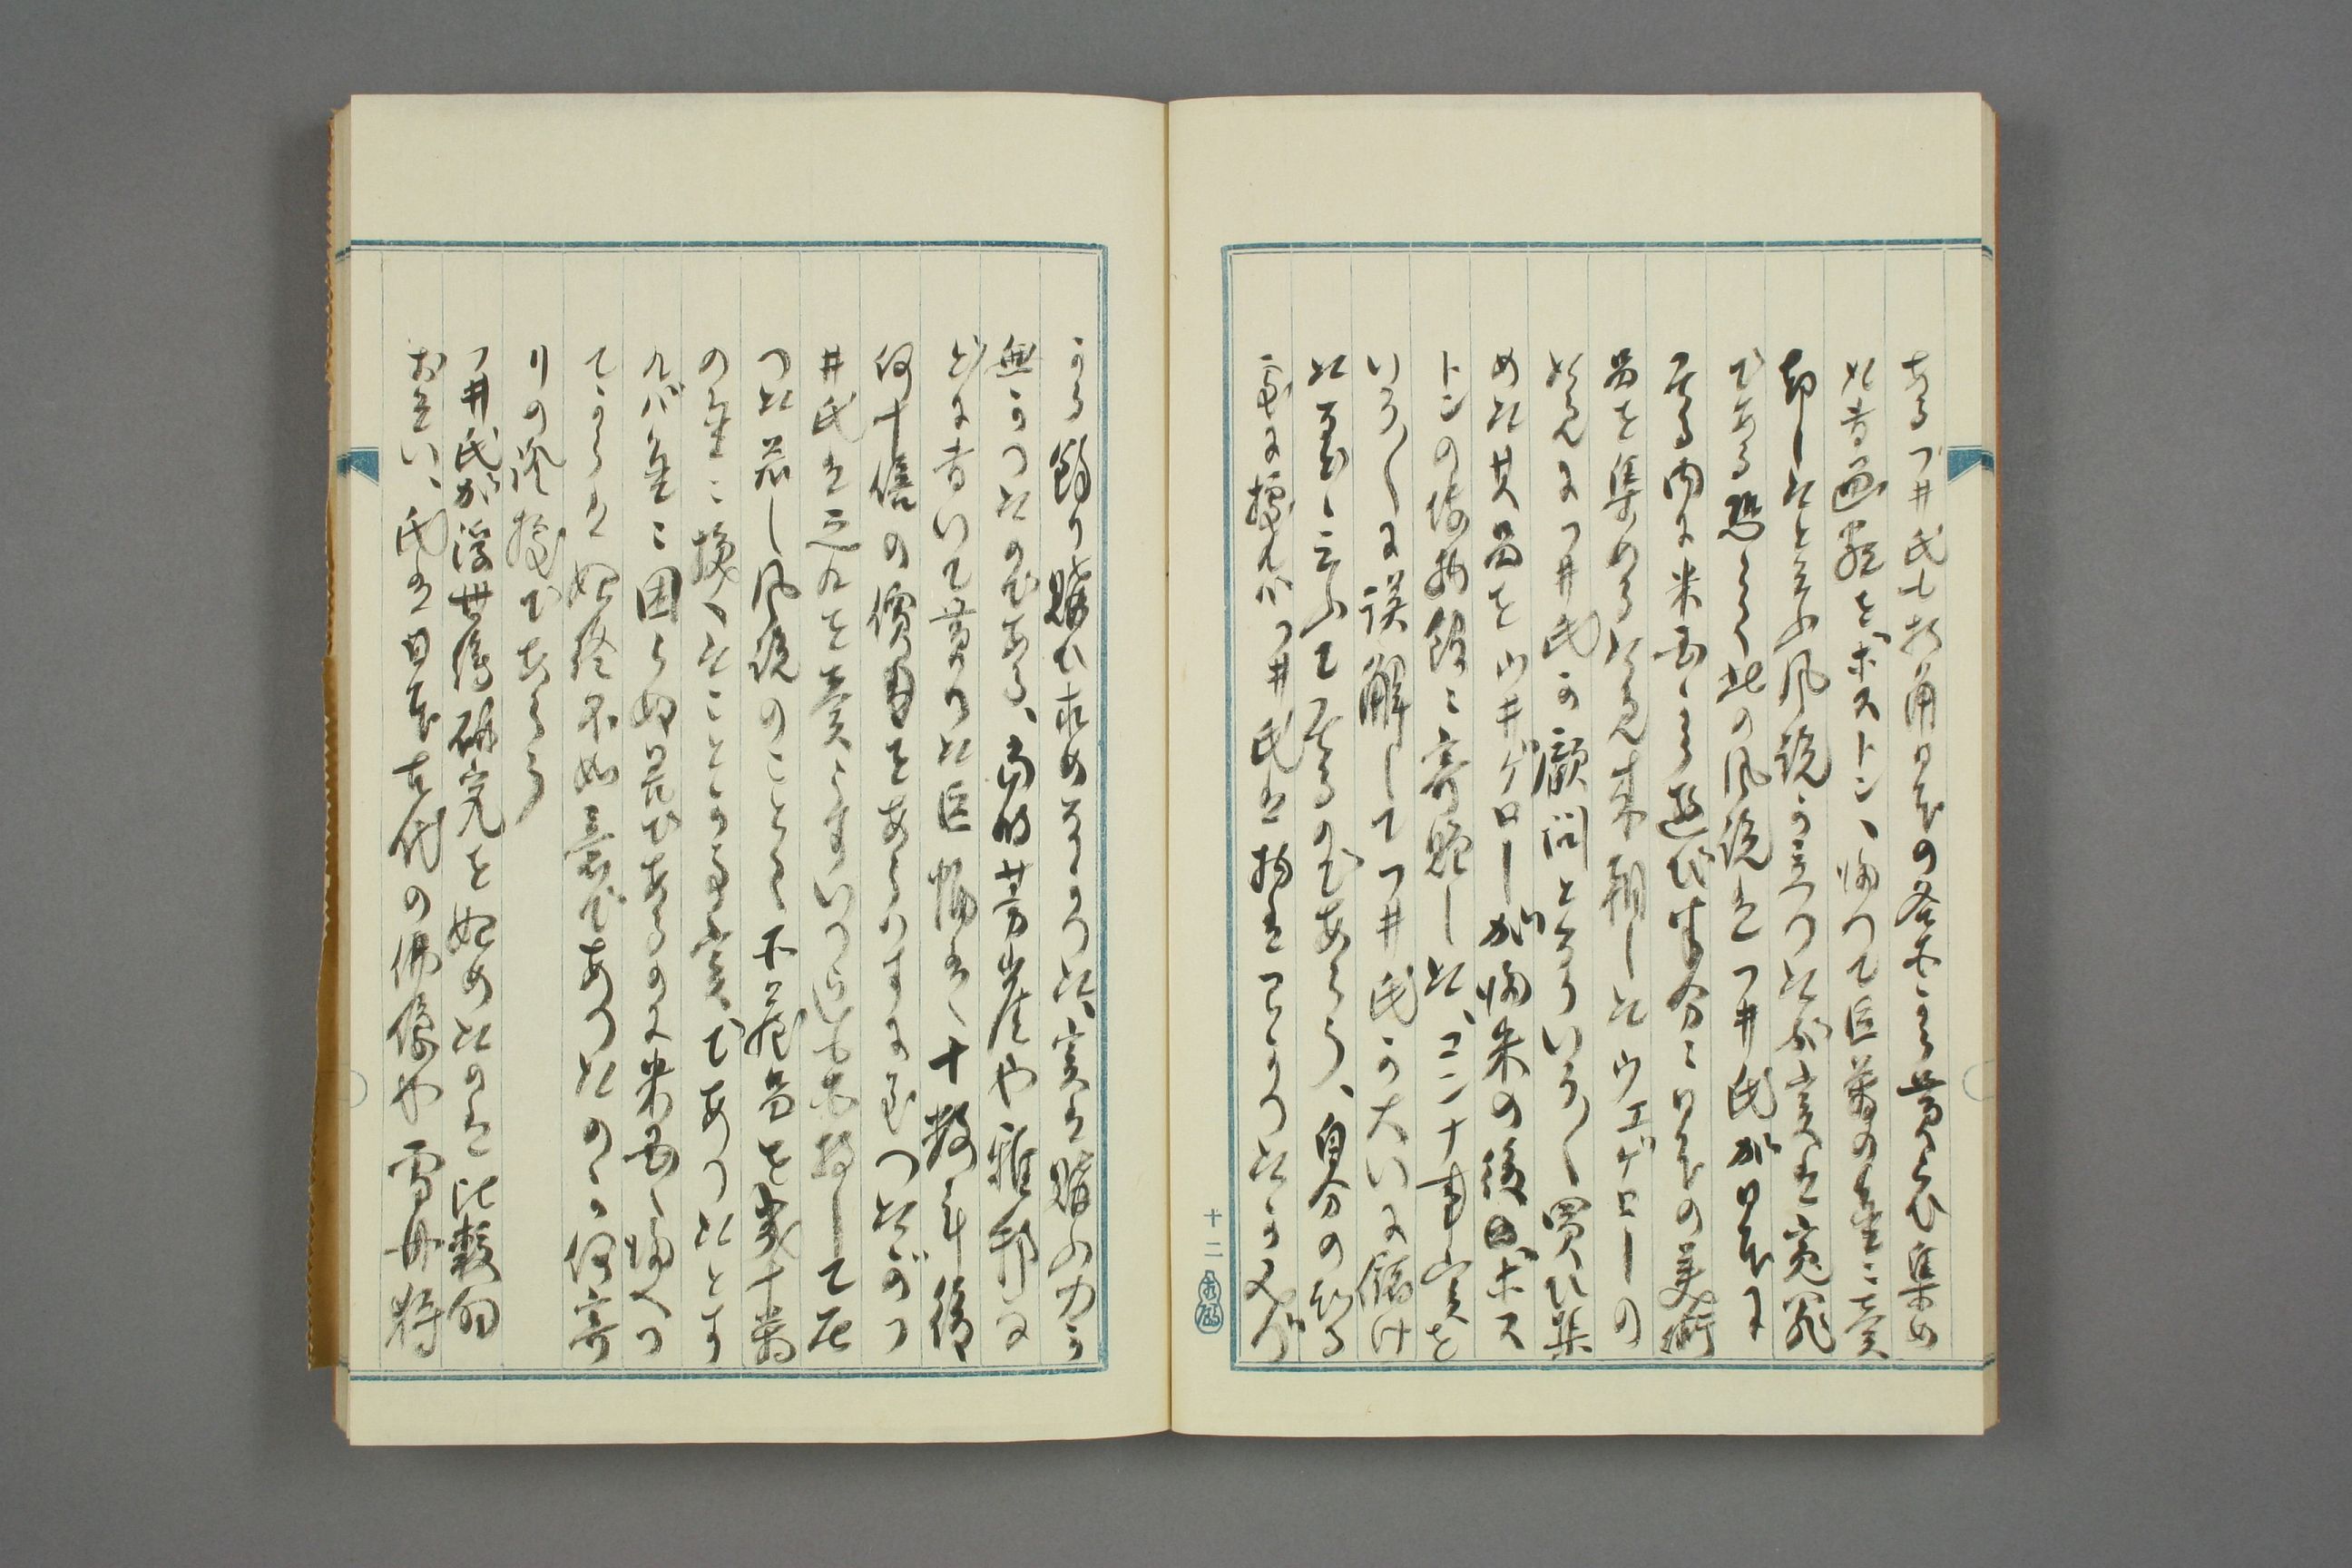 ある フ井氏も折角日本の各所から貰らひ集め
た書画類をボストンへ帰つて巨萬の金に売
却したと云ふ風説が立つたが実は寃罪
である 恐らく此の風説はフ井氏が日本に
居る内に米国から遊び半分に日本の美術
品を集める考で来朝したウエゲローの
為にフ井氏が顧問となりいろ〱買ひ集
めた其品をウ井ゲローが帰米の後ボス
トンの博物館に寄贈した、コンナ事実を
いろ〱に誤解してフ井氏が大いに儲け
た如く云ふて居るのであらう、自分の知る
処に據ればフ井氏は物はなかつたが又が
うる 餘り購ひ求めなかつた、実は購ふ力が
無かつたのである、尚ほ芳崖や雅邦な
どに書いて貰つた巨幅は、十数年後
何十倍の價をあらはすに至つたがフ
井氏は之れを売らずいつ迄も所持して居
つた 若し風説のことく不用品を幾十萬
の金に換へたことがある事実であつたとす
れバ金に困らぬ筈であるのに米国へ帰へつ
てからは始終不如意であつたのハ何寄
りの證據であらう
フ井氏が浮世絵研究を始めたのは比較的
おそい、氏は日本古代の佛像や雪舟 狩
十二